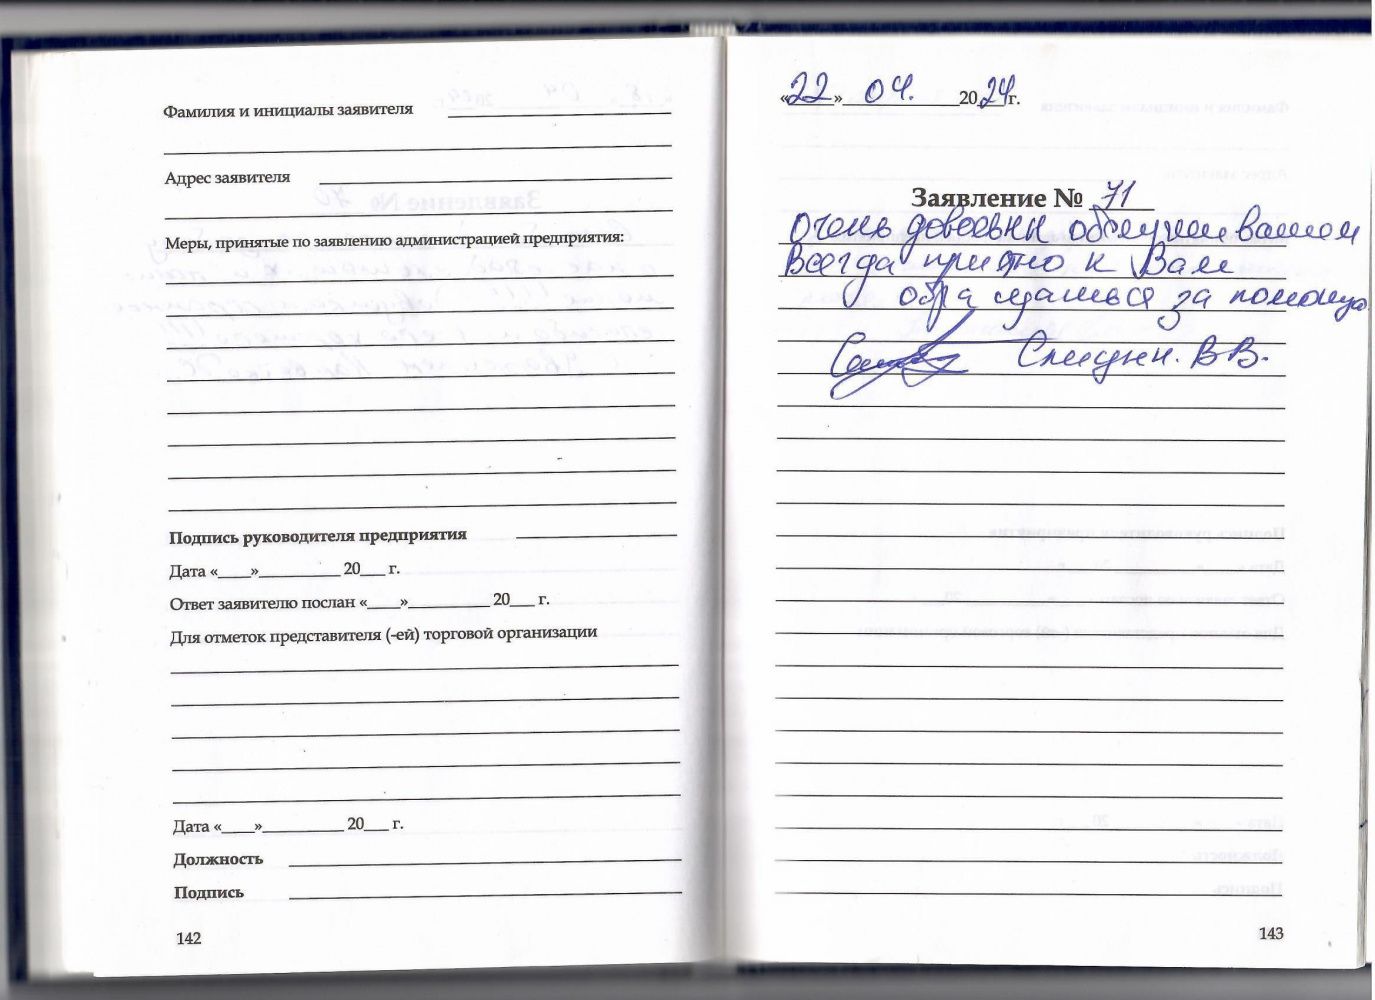 Фамилия и инициалы заявителя
Адрес заявителя
Меры, принятые по заявлению администрацией предприятия:
Подпись руководителя предприятия
Дата «____»__________ 20___ г.
Ответ заявителю послан «____»__________ 20___ г.
Для отметок представителя (-ей) торговой организации
Дата «____»__________ 20___ г.
Должность
Подпись
142
«22» 04. 2024г.
Заявление № 71
Очень довольны
Всегда приятно к Вам
обращаться за помощью
В В.
143